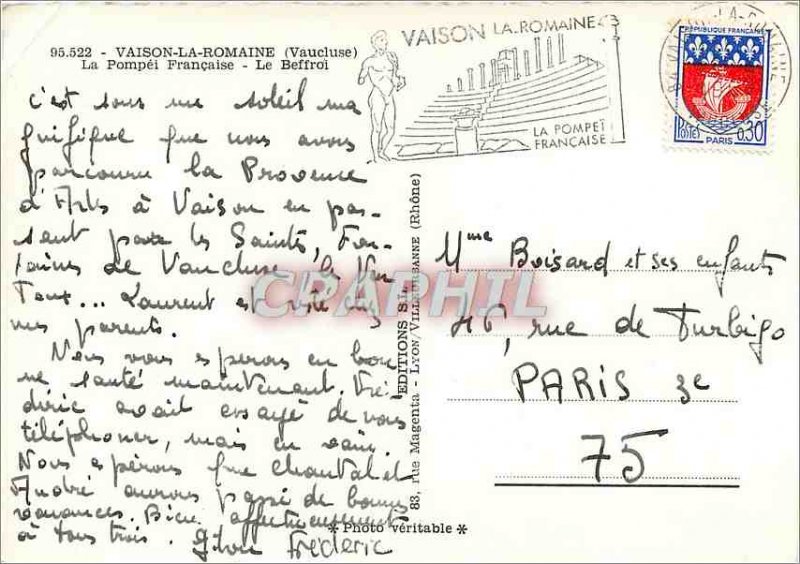 95.522 - VAISON-LA-ROMAINE (Vaucluse)
La Pompéi Française - Le Beffroi
VAISON LA-ROMAINE
LA POMPEÏ
FRANÇAISE
REPUBLIQUE FRANÇAISE
POSTES
0,30
PARIS
c'est sous un soleil ma
gnifique que nous avons
parcouru la Provence
d'Arles à Vaison en pas-
sant par les Saintes, Fon-
taines de Vaucluse, les Ven
toux... Laurent est resté chez
mes parents.
Nous vous espérons en bon
ne santé maintenant. Fré-
déric avait essayé de vous
téléphoner, mais en vain.
Nous espérons que Chantal et
André aurons passé de bonnes
vacances. Bien affectueusement
à tous trois.
Frédéric
EDITIONS S.L.
83, rue Magenta - LYON/VILLEURBANNE (Rhône)
* Photo véritable *
Mme Boisard et ses enfants
46, rue de Turbigo
PARIS 3e
75
CPAPHIL